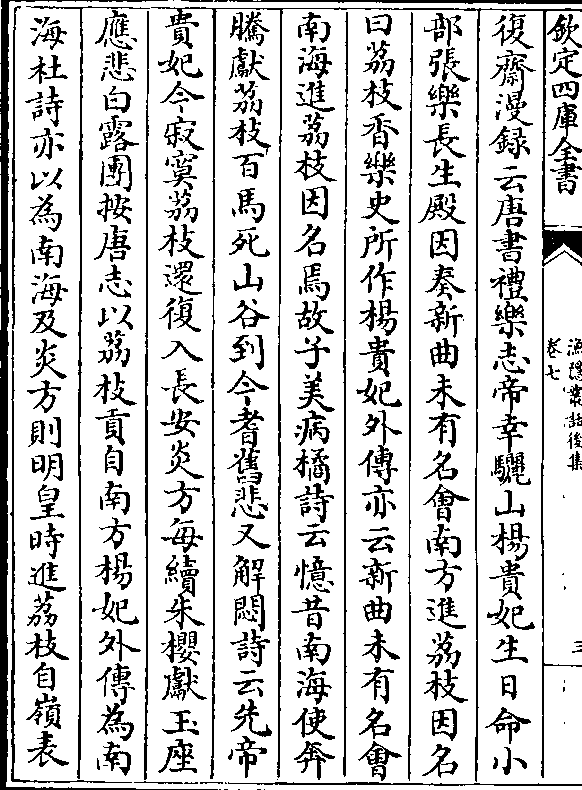 欽定四庫全書
漁隱叢話後集
卷七
三
復齋漫録云唐書禮樂志帝幸驪山楊貴妃生日命小
部張樂長生殿因奏新曲未有名會南方進荔枝因名
曰荔枝香樂史所作楊貴妃外傳亦云新曲未有名會
南海進荔枝因名焉故子美病橘詩云憶昔南海使奔
騰獻荔枝百馬死山谷到今耆舊悲又解悶詩云先帝
貴妃今寂寞荔枝還復入長安炎方每續朱櫻獻玉座
應悲白露團按唐志以荔枝貢自南方楊妃外傳為南
海杜詩亦以為南海及炎方則明皇時進荔枝自嶺表